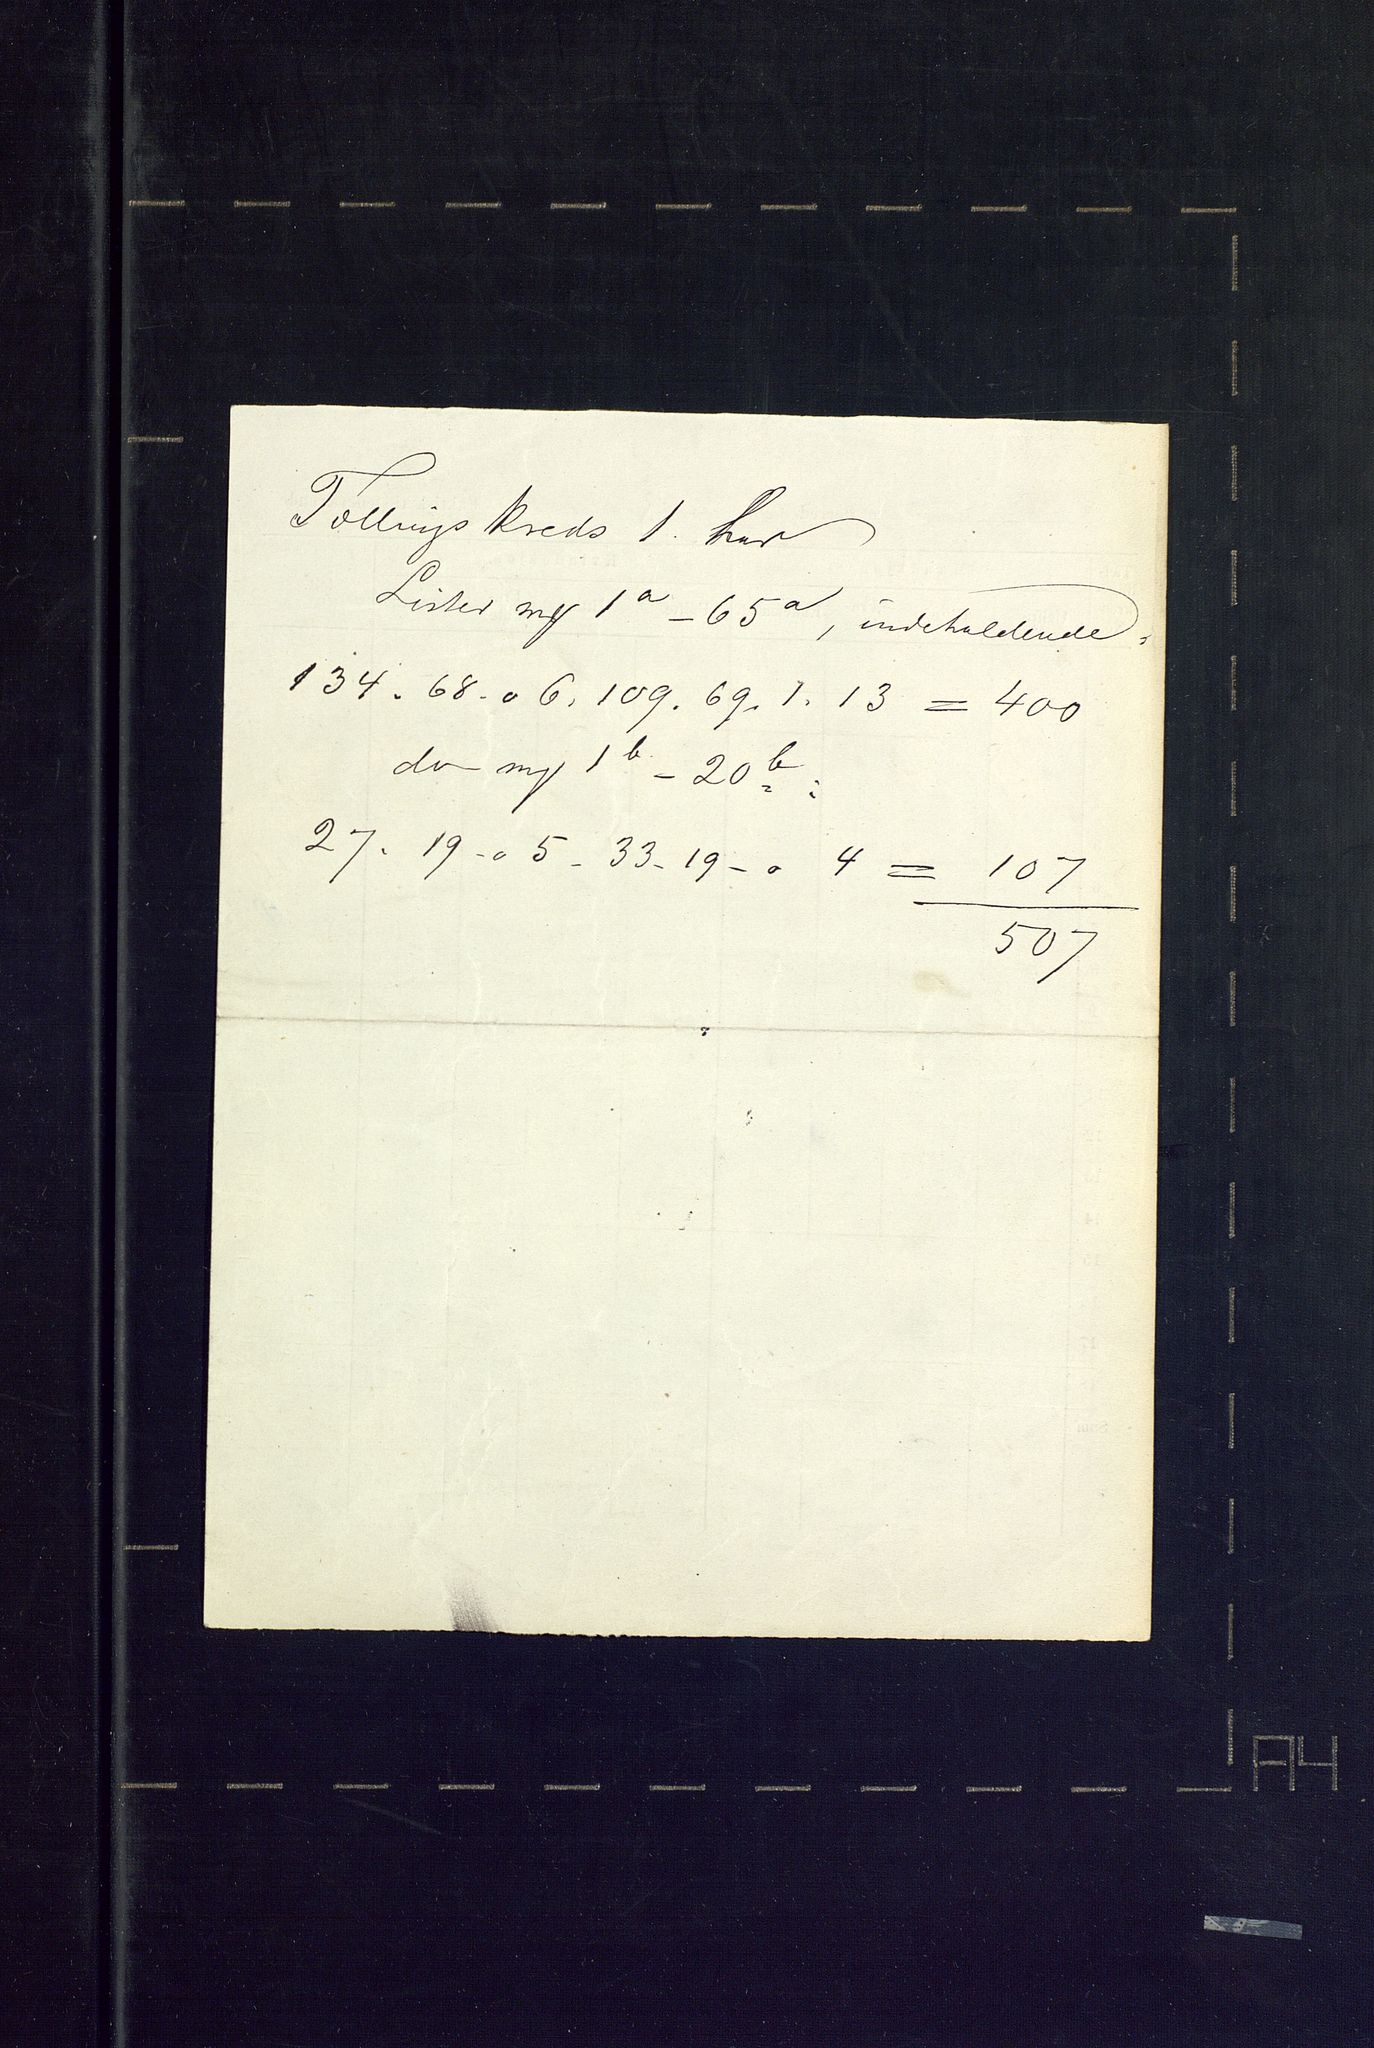 Tællings kreds 1. har
Lister mrk 1a - 65a, indeholdende:
134. 68. 0 6. 109. 69. 1. 13 = 400
do mrk 1b - 20b:
27. 19 - 0 5 - 33 - 19 - 0 4 = 107
507
A4